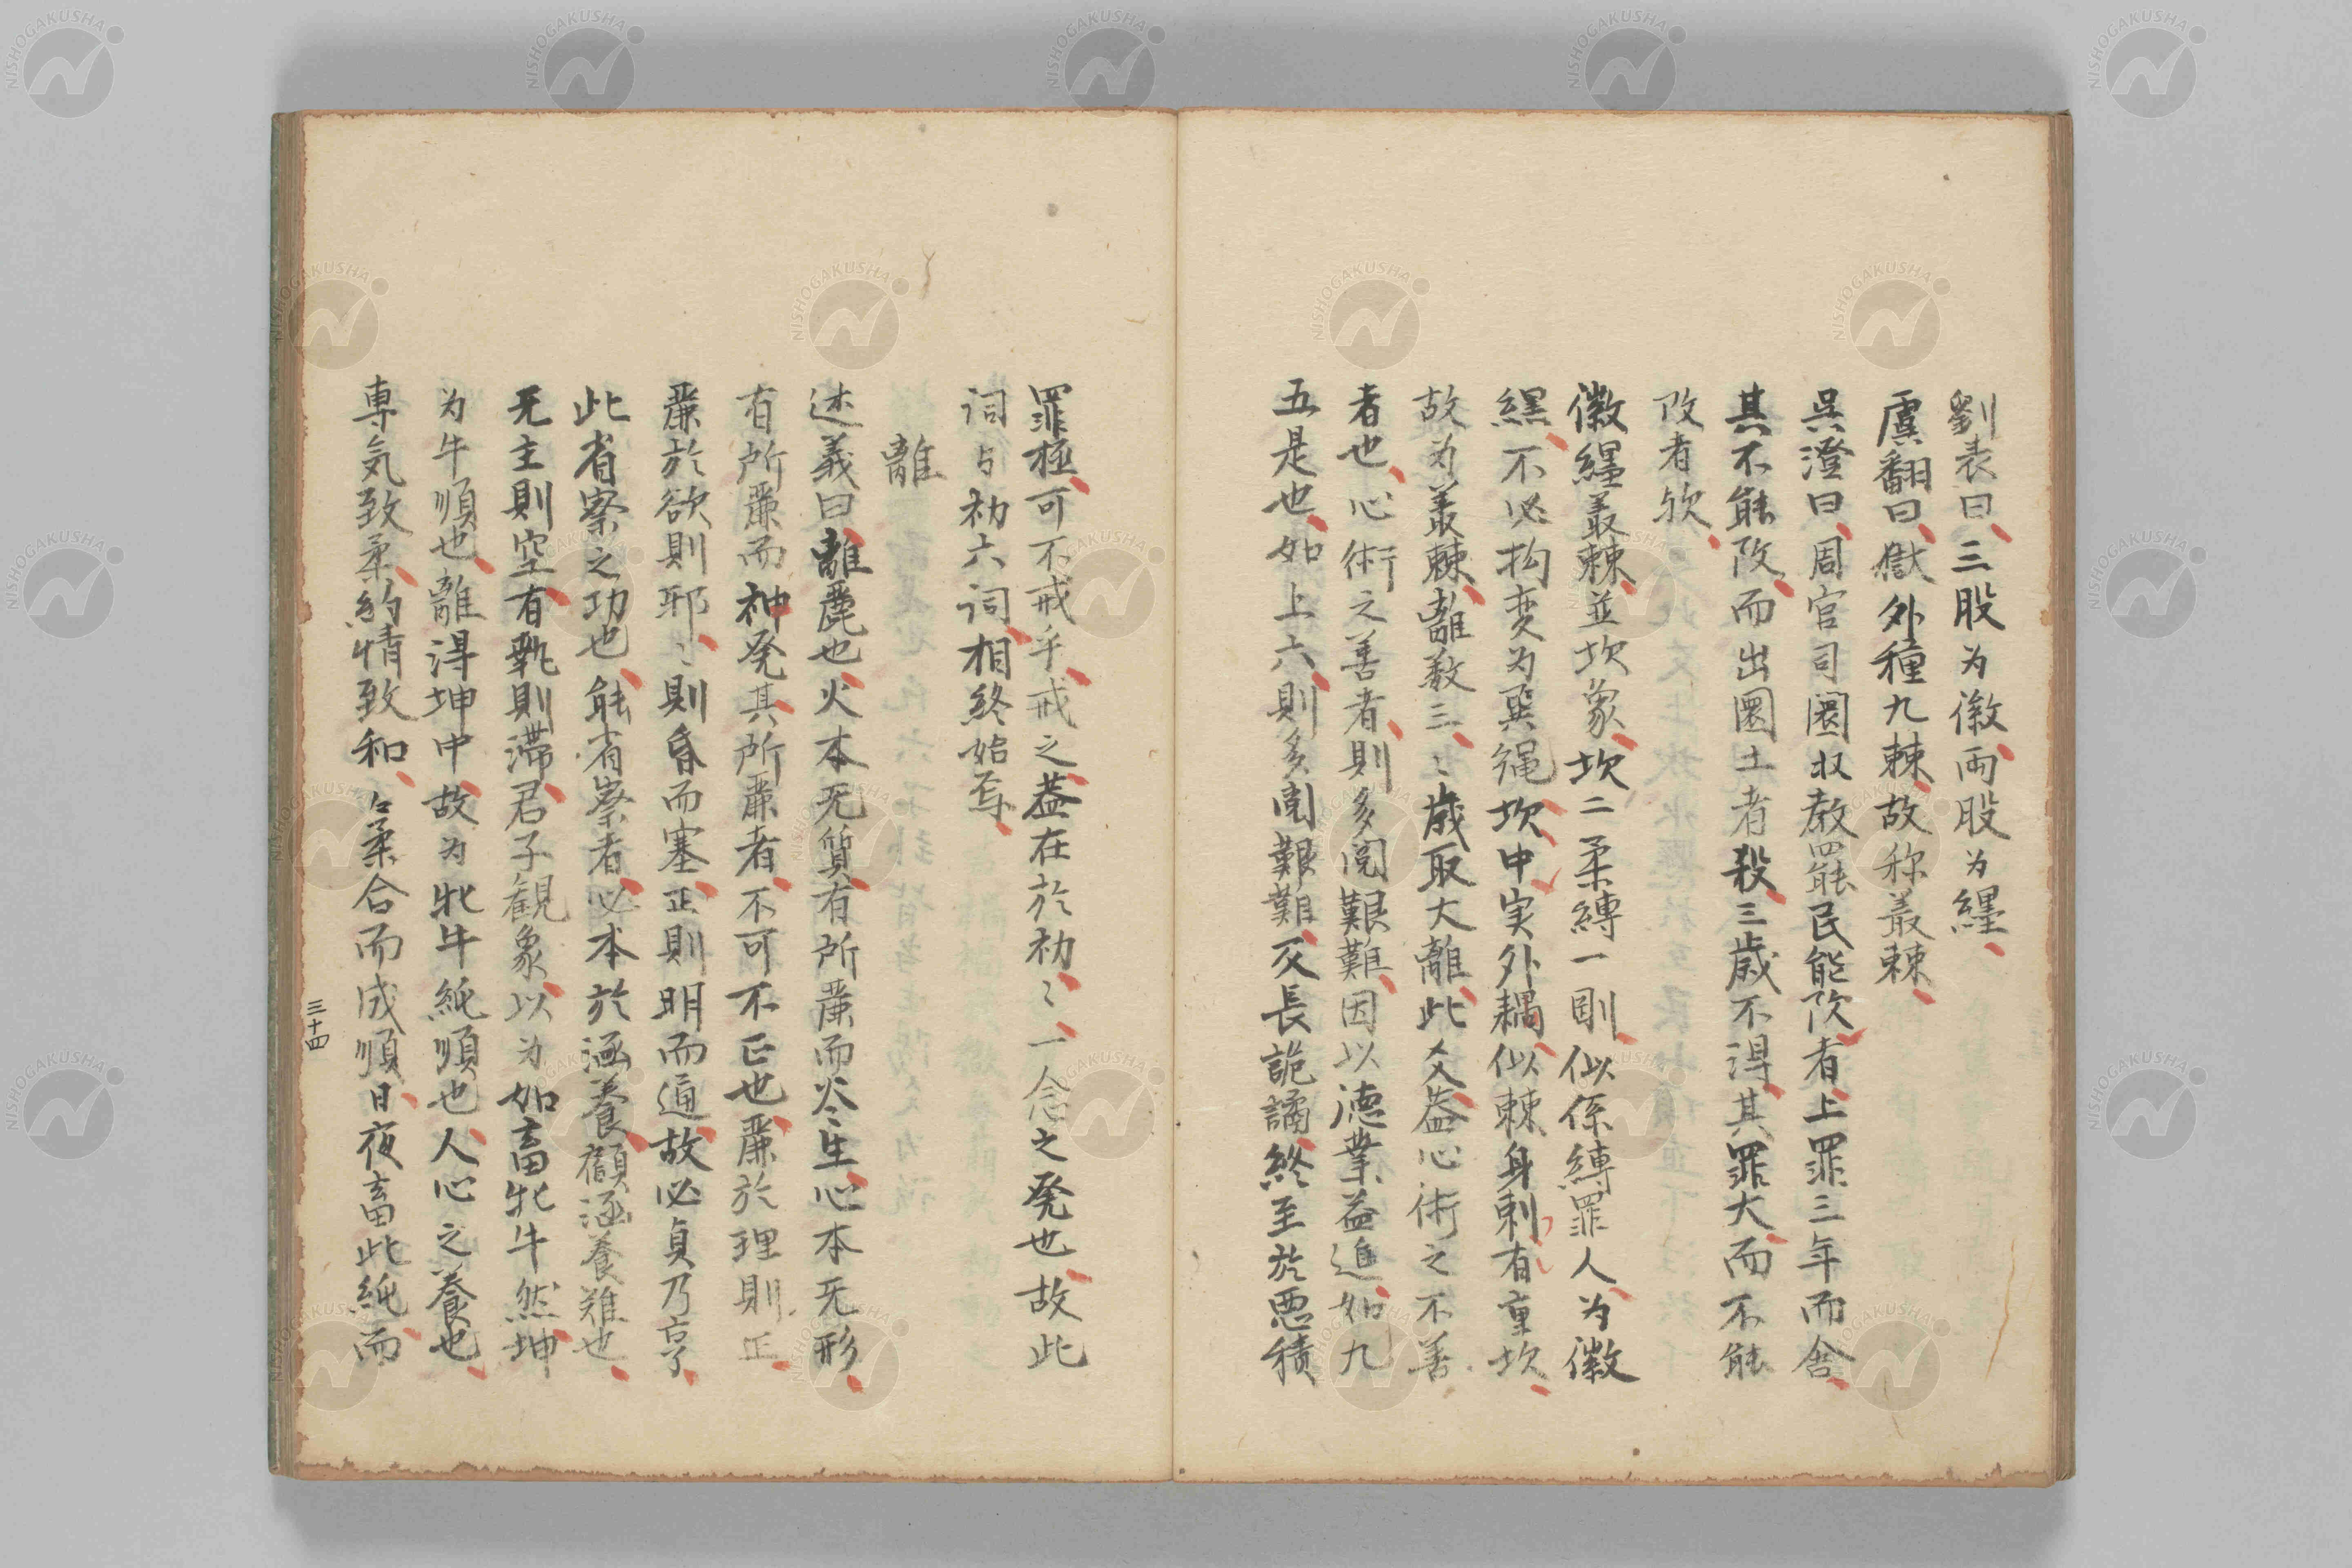 劉表曰三股为徽両股为纆
虞翻曰獄外種九棘故称叢棘
吳澄曰周官司圜收教罷民能改者上罪三年而舍
其不能改而出圜土者殺三歳不得其罪大而不能
改者欤
徽纆叢棘並坎象坎二柔縛一剛似係縛罪人为徽
纆不必拘变为巽繩坎中実外耦似棘身刺有重坎
故为叢棘離数三〻歳取大離此爻蓋心術之不善
者也心術之善者則多閲艱難因以徳業益進如九
五是也如上六則多閲艱難反長詭譎終至於悪積
罪極可不戒乎戒之蓋在於初〻一念之発也故此
詞与初六詞相終始焉
離
述義曰離麗也火本无質有所麗而火生心本无形
有所麗而神発其所麗者不可不正也麗於理則正
麗於欲則邪〻則昏而塞正則明而通故必貞乃亨
此省察之功也能省察者必本於涵養顧涵養难也
无主則空有執則滞君子観象以为如畜牝牛然坤
为牛順也離得坤中故为牝牛純順也人心之養也
専気致柔約情致和〻柔合而成順日夜畜此純而
三十四
NISHOGAKUSHA